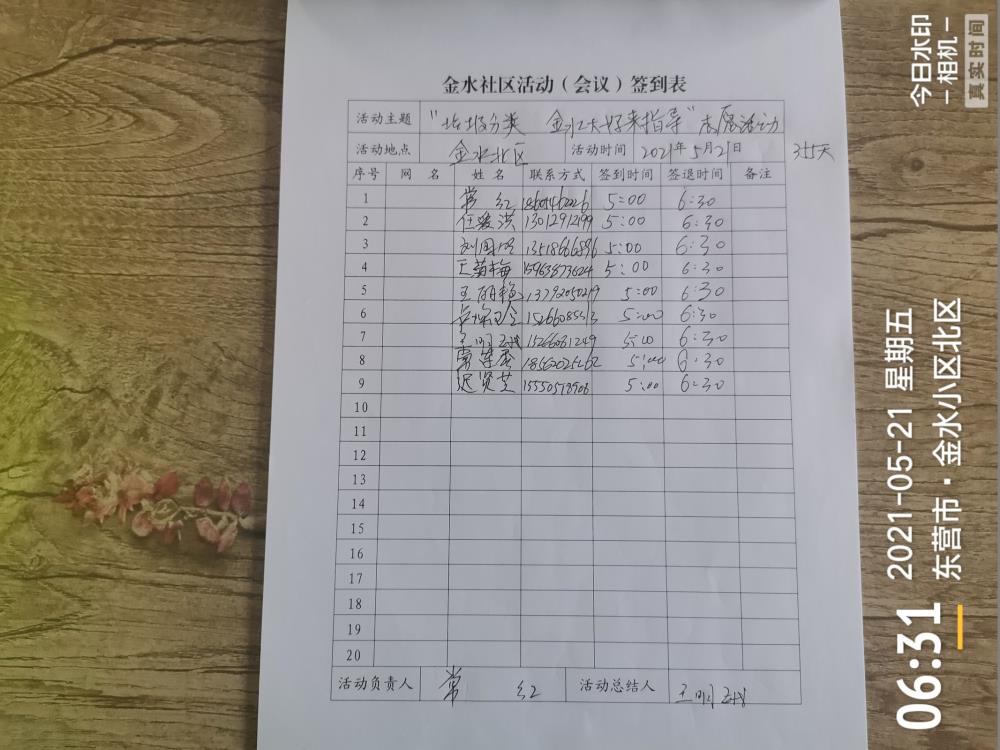 金水社区活动（会议）签到表
活动主题 "垃圾分类 金水大妈来指导"志愿活动
活动地点 金水北区 活动时间 2021年5月21日 355天
序号 网 名 姓 名 联系方式 签到时间 签退时间 备注
1 常 红 5:00 6:30
2 任爱洪 13012912199 5:00 6:30
3 刘国明 13518666896 5:00 6:30
4 王菊梅 15963873624 5:00 6:30
5 王丽艳 13792050219 5:00 6:30
6 5:00 6:30
7 王明 15266061249 5:00 6:30
8 常莲香 18562025262 5:00 6:30
9 迟贤芝 15550578906 5:00 6:30
10
11
12
13
14
15
16
17
18
19
20
活动负责人 常 红 活动总结人 王明
今日水印
相机
真实时间
06:31 2021-05-21 星期五
东营市·金水小区北区